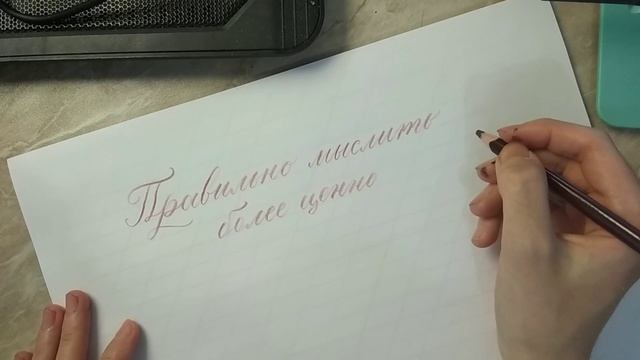 Правильно мыслить
более ценно